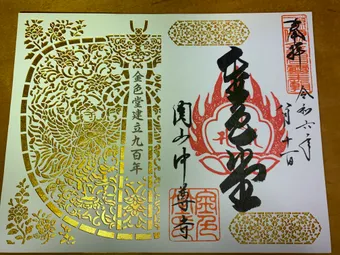 奉拝
令和六年
月十日
金色堂
関山中尊寺
金色堂建立九百年